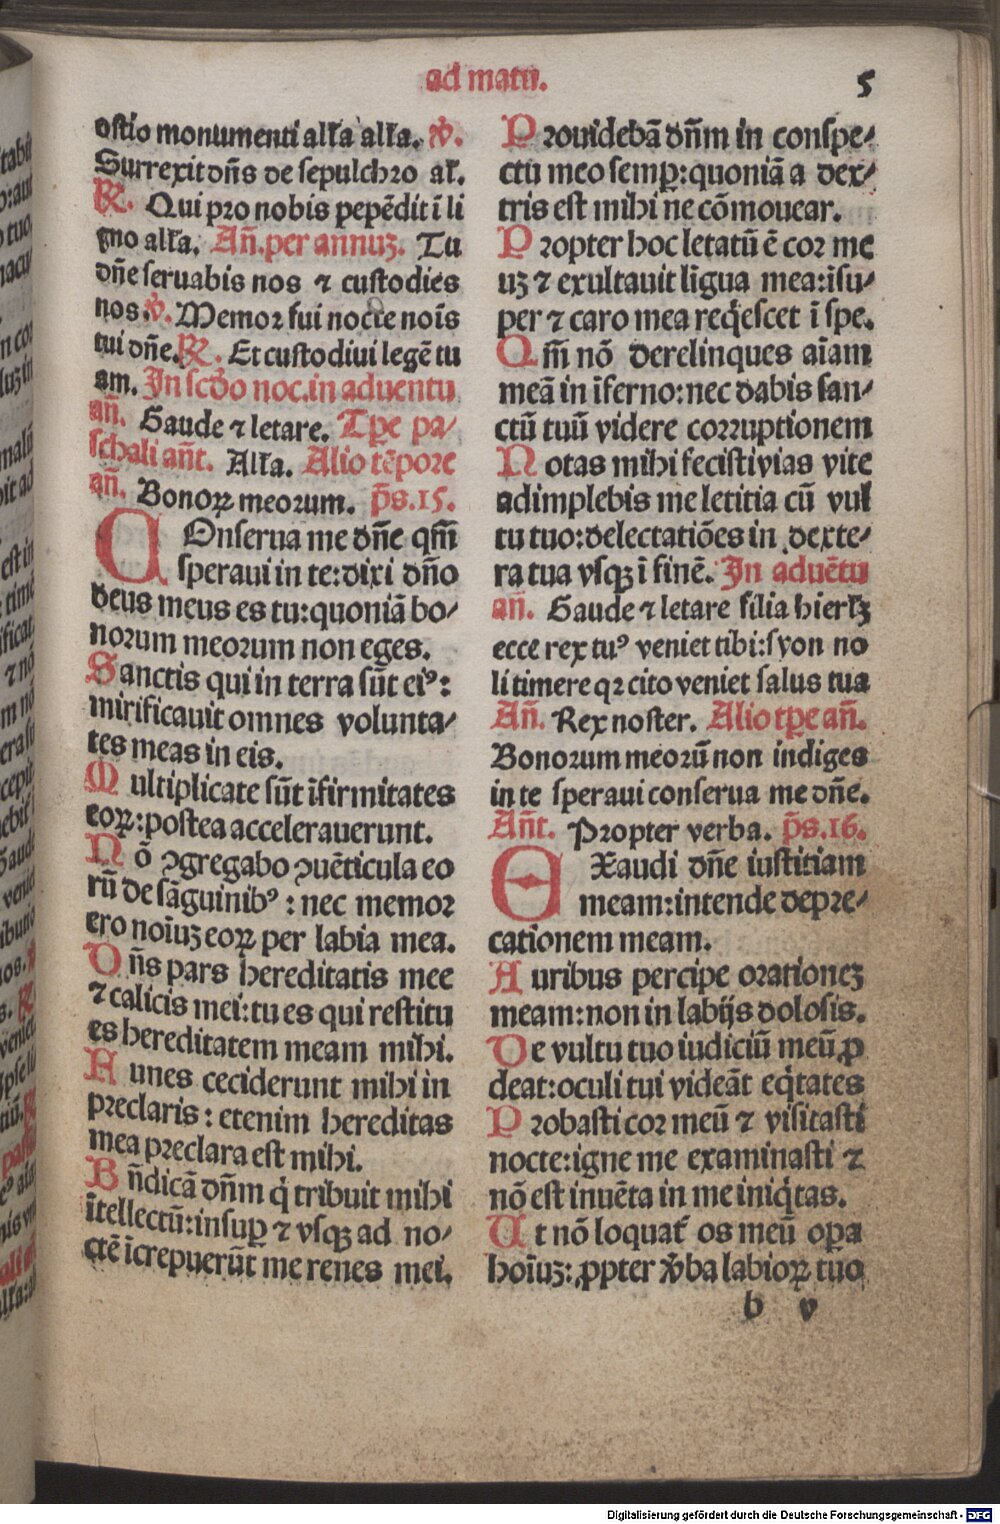 ad matu.
5
ostio monumenti alľa alľa. ℣.
Surrexit dñs de sepulchro al.
℟. Qui pro nobis pepēdit ī li
gno alľa. Añ. per annuꝫ. Tu
dñe seruabis nos ⁊ custodies
nos. ℣. Memor fui nocte noīs
tui dñe. ℟. Et custodiui legē tu
am. In scďo noc. in aduentu
añ. Gaude ⁊ letare. Tꝑe pa⸗
schali añt. Alľa. Alio tēpore
añ. Bonoꝝ meorum. p̄s. 15.
COnserua me dñe qm̄
speraui in te: dixi dño
deus meus es tu: quoniā bo⸗
norum meorum non eges.
Sanctis qui in terra sūt eiꝰ:
mirificauit omnes volunta⸗
tes meas in eis.
Multiplicate sūt īfirmitates
eoꝝ: postea accelerauerunt.
Nō ꝯgregabo ꝯuēticula eo
rū de sāguinibꝰ: nec memor
ero noīuꝫ eoꝝ per labia mea.
Dñs pars hereditatis mee
⁊ calicis mei: tu es qui restitu
es hereditatem meam mihi.
Funes ceciderunt mihi in
preclaris: etenim hereditas
mea preclara est mihi.
Bñdicā dñm q̇ tribuit mihi
ītellectū: insuꝑ ⁊ vsqꝫ ad no⸗
ctē īcrepuerūt me renes mei.
Prouidebā dñm in conspe⸗
ctu meo semꝑ: quoniā a dex⸗
tris est mihi ne cōmouear.
Propter hoc letatū ē cor me
uꝫ ⁊ exultauit līgua mea: īsu⸗
per ⁊ caro mea req̇escet ī spe.
Qm̄ nō derelinques aīam
meā in īferno: nec dabis san⸗
ctū tuū videre corruptionem
Notas mihi fecisti vias vite
adimplebis me letitia cū vul
tu tuo: delectatiōes in dexte⸗
ra tua vsqꝫ ī finē. In aduētu
añ. Gaude ⁊ letare filia hierľꝫ
ecce rex tuꝰ veniet tibi: syon no
li timere qꝛ cito veniet salus tua
Añ. Rex noster. Alio tꝑe añ.
Bonorum meorū non indiges
in te speraui conserua me dñe.
Añt. Propter verba. p̄s. 16.
EXaudi dñe iustitiam
meam: intende depre⸗
cationem meam.
Auribus percipe orationeꝫ
meam: non in labijs dolosis.
De vultu tuo iudiciū meū ꝓ
deat: oculi tui videāt eq̇tates
Probasti cor meū ⁊ visitasti
nocte: igne me examinasti ⁊
nō est inuēta in me iniq̇tas.
Ut nō loquat̉ os meū oꝑa
hoīuꝫ: ꝓpter v̓ba labioꝝ tuo
b v
Digitalisierung gefördert durch die Deutsche Forschungsgemeinschaft - DFG